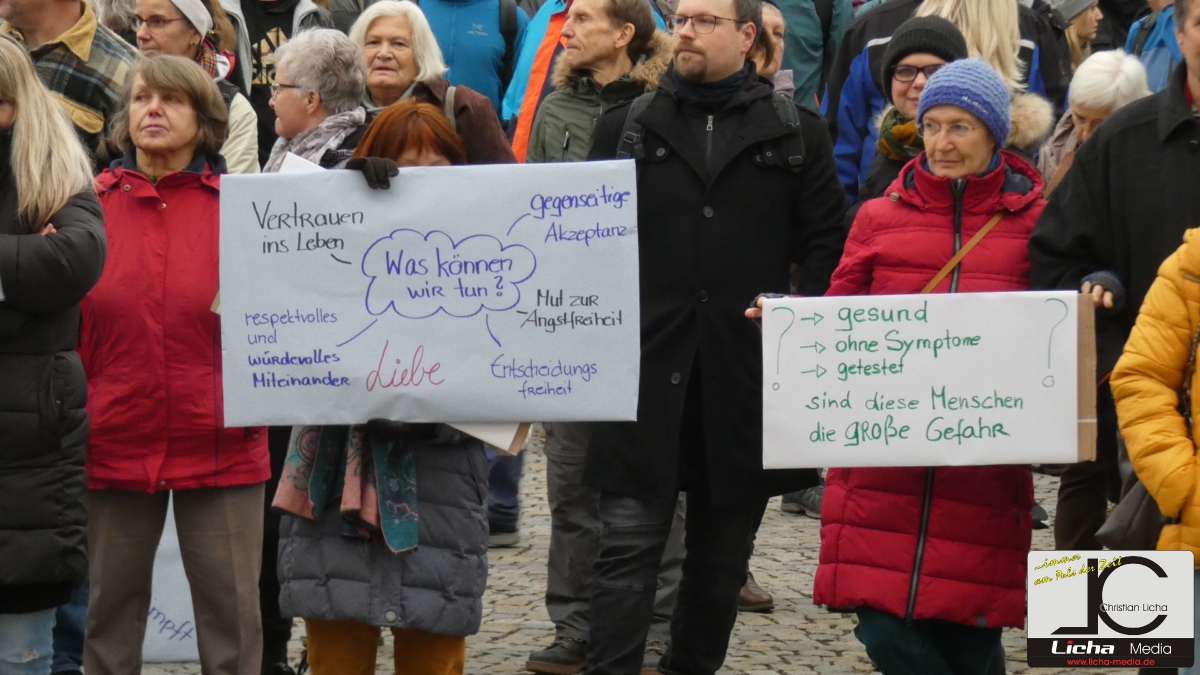 Vertrauen
ins Leben
gegenseitige
Akzeptanz
Was können
wir tun?
Mut zur
Angstfreiheit
respektvolles
und
würdevolles
Miteinander
Liebe
Entscheidungs
freiheit
? → gesund ?
→ ohne Symptome
→ getestet
sind diese Menschen
die GROßE Gefahr
mpft
...immer
am Puls der Zeit
Christian Licha
Licha Media
www.licha-media.de